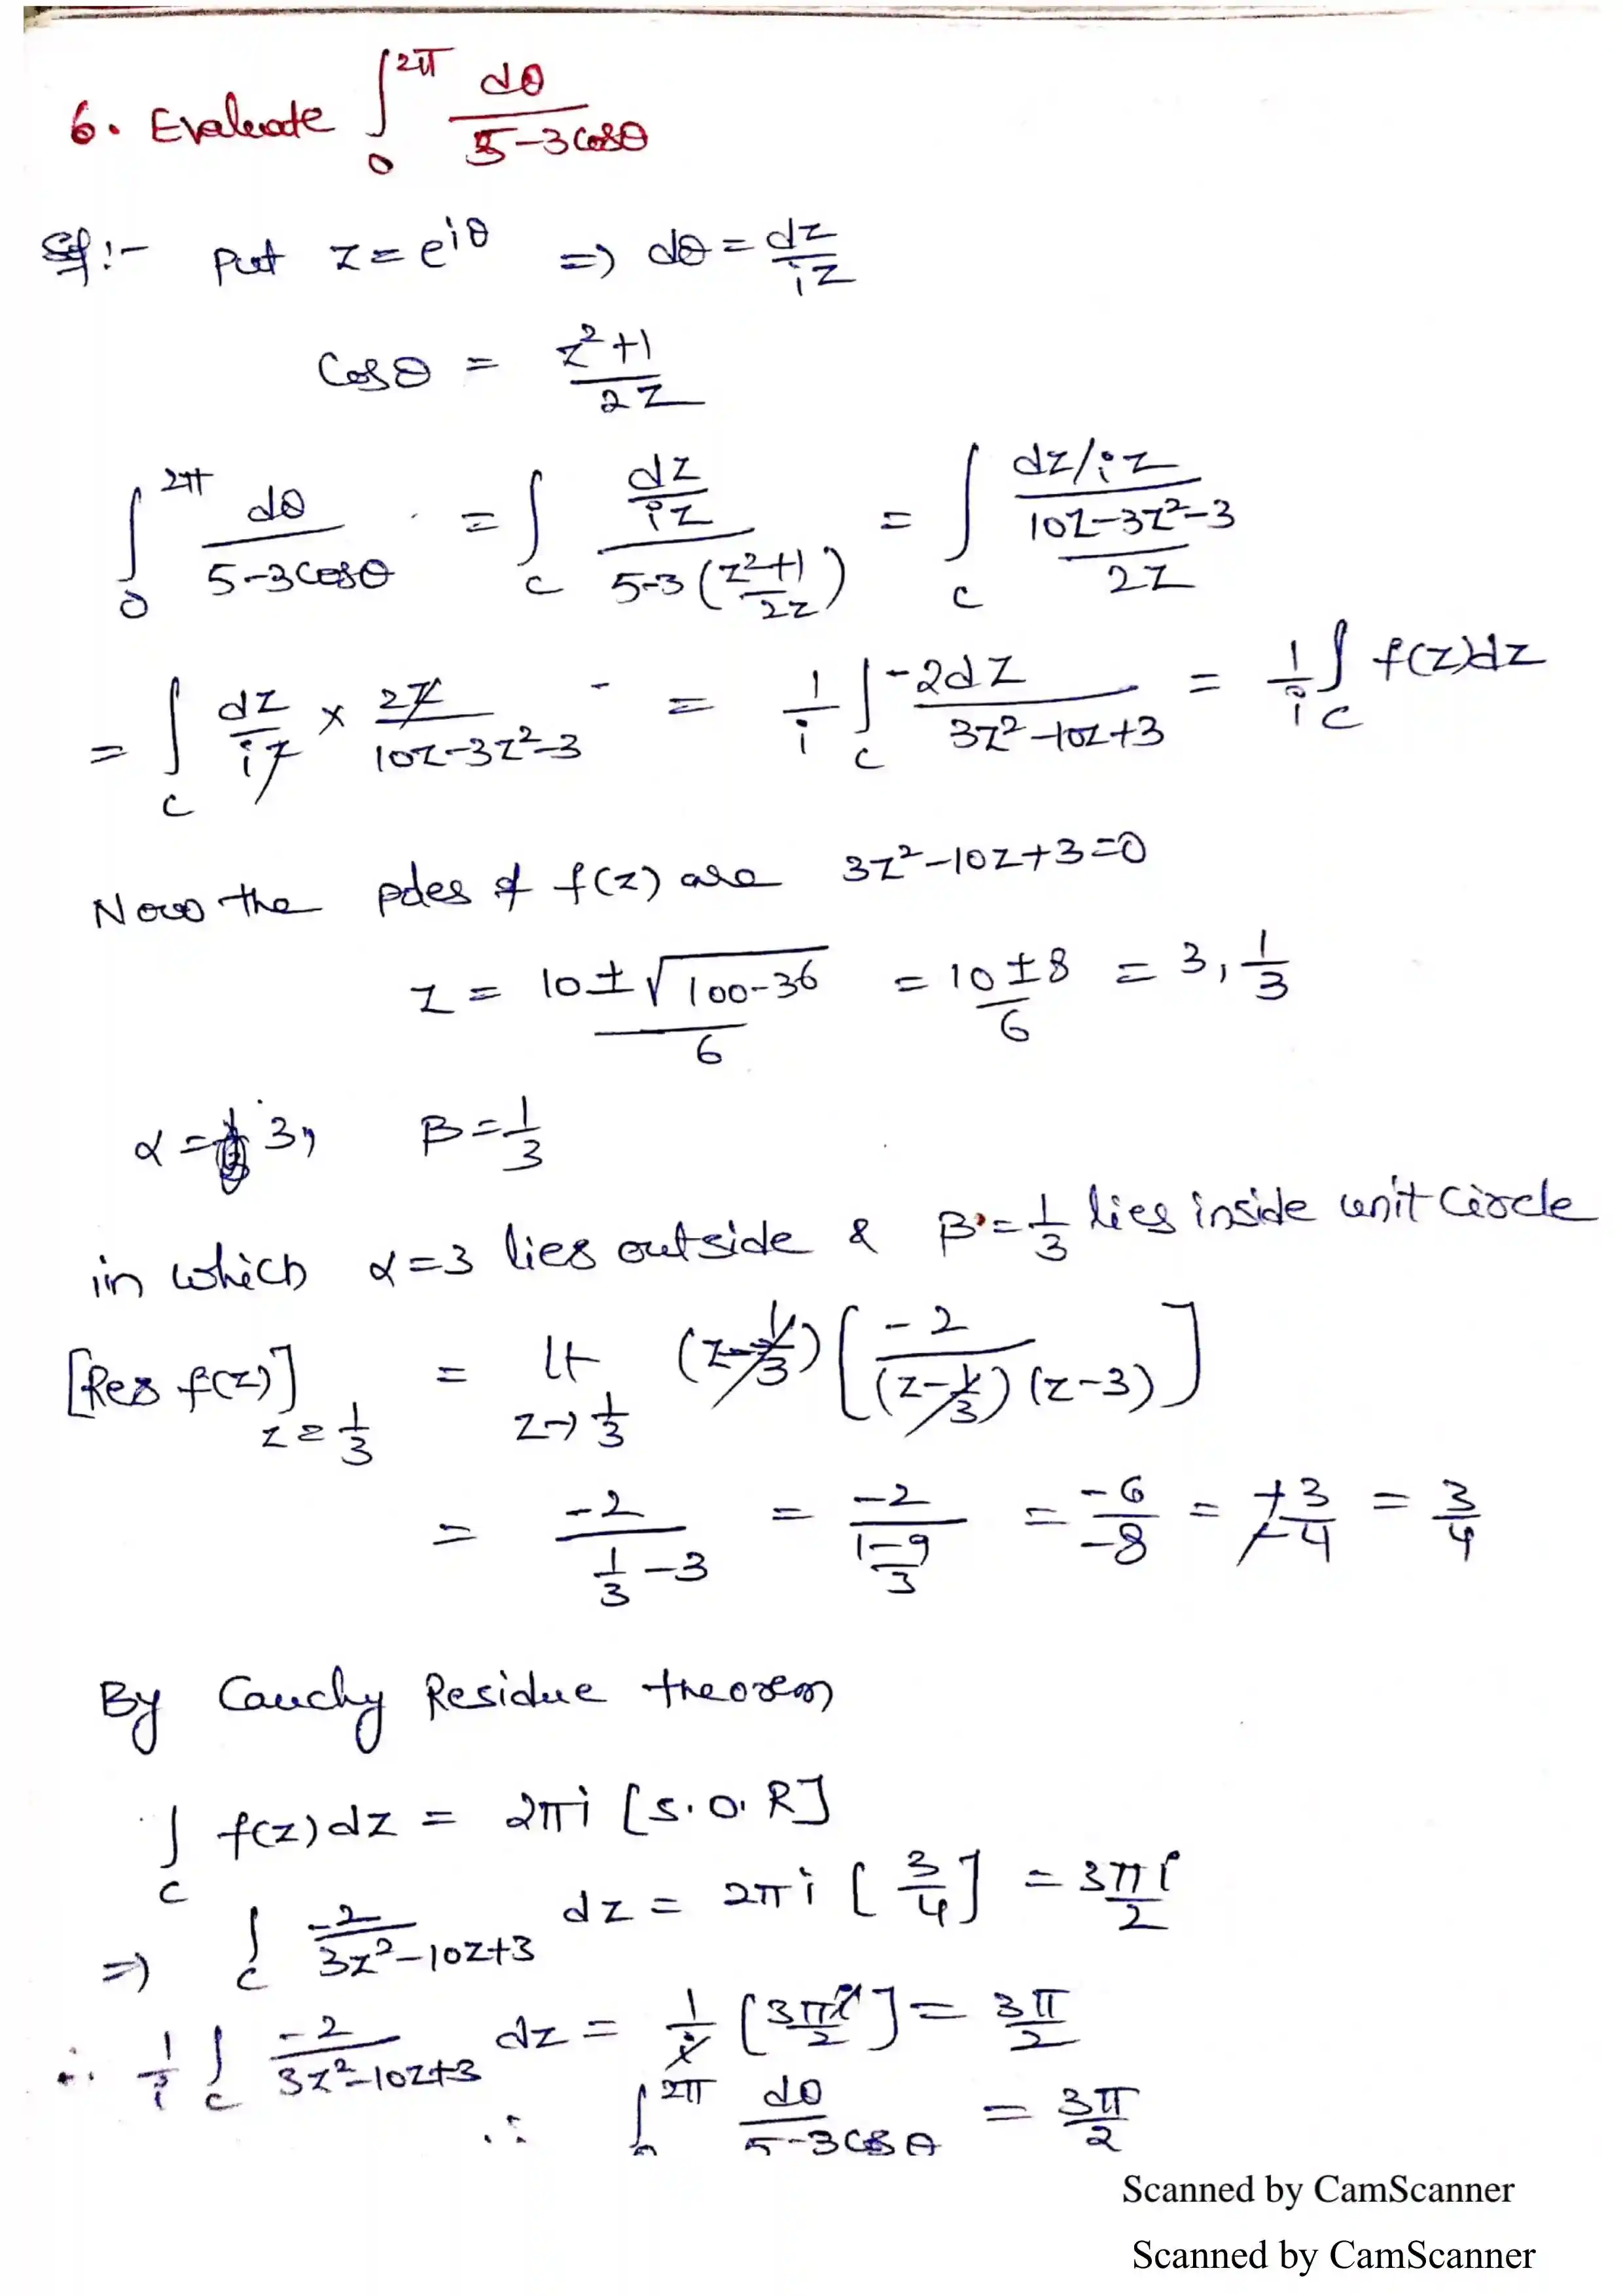 6. Evaluate ∫₀^{2π} dθ/(5-3cosθ)
Sol:- Put z = e^{iθ} => dθ = dz/iz
Cosθ = (z²+1)/2z
∫₀^{2π} dθ/(5-3cosθ) = ∫_C (dz/iz)/(5-3((z²+1)/2z)) = ∫_C (dz/iz)/((10z-3z²-3)/2z)
= ∫_C dz/iz × 2z/(10z-3z²-3) = 1/i ∫_C -2dz/(3z²-10z+3) = 1/i ∫_C f(z)dz
Now the poles of f(z) are 3z²-10z+3=0
z = (10±√(100-36))/6 = (10±8)/6 = 3, 1/3
α = 3, β = 1/3
in which α=3 lies outside & β=1/3 lies inside unit Circle
[Res f(z)]_{z=1/3} = lt_{z→1/3} (z-1/3) [-2/((z-1/3)(z-3))]
= -2/(1/3-3) = -2/((1-9)/3) = -6/-8 = +3/4 = 3/4
By Cauchy Residue theorem
∫_C f(z)dz = 2πi [S.O.R]
=> ∫_C -2/(3z²-10z+3) dz = 2πi [3/4] = 3πi/2
∴ 1/i ∫_C -2/(3z²-10z+3) dz = 1/i [3πi/2] = 3π/2
∴ ∫₀^{2π} dθ/(5-3cosθ) = 3π/2
Scanned by CamScanner
Scanned by CamScanner